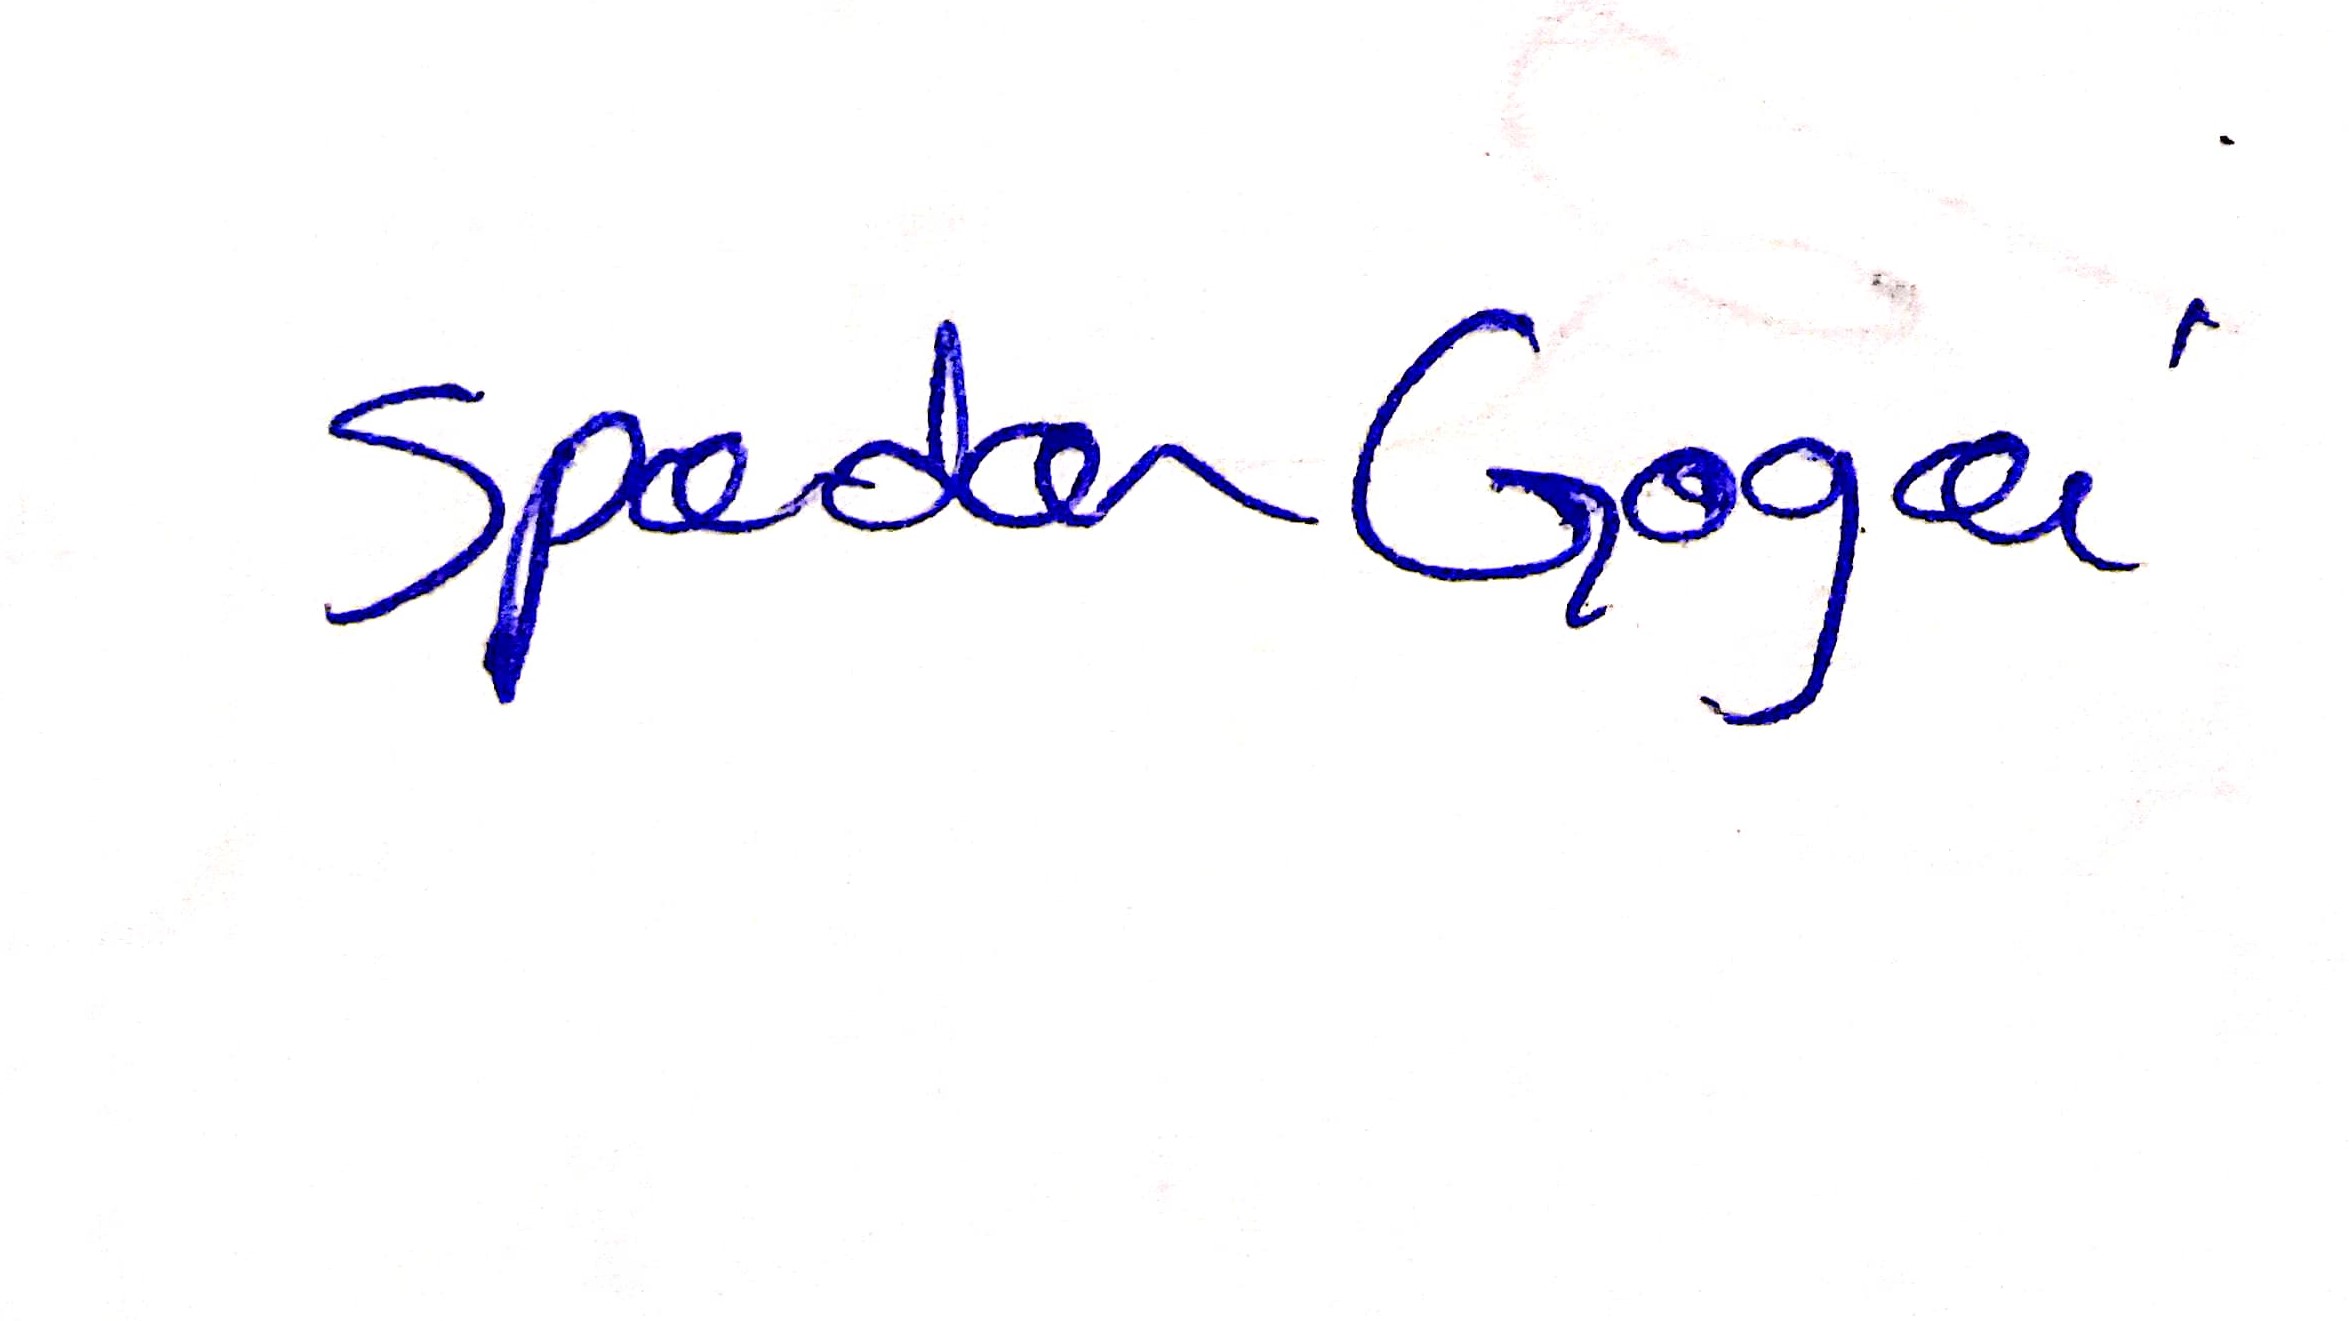 Spadan Gogoi